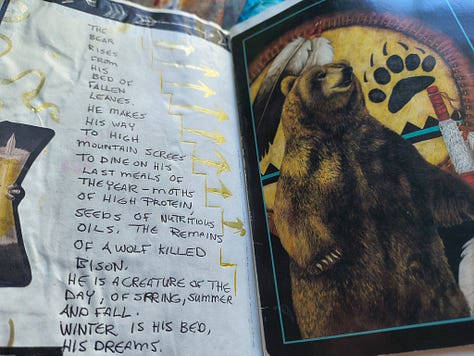 THE
BEAR
RISES
FROM
HIS
BED OF
FALLEN
LEAVES.
HE MAKES
HIS WAY
TO HIGH
MOUNTAIN SCREES
TO DINE ON HIS
LAST MEALS OF
THE YEAR - MOTHS
OF HIGH PROTEIN,
SEEDS OF NUTRITIOUS
OILS. THE REMAINS
OF A WOLF KILLED
BISON.
HE IS A CREATURE OF THE
DAY, OF SPRING, SUMMER
AND FALL.
WINTER IS HIS BED,
HIS DREAMS.